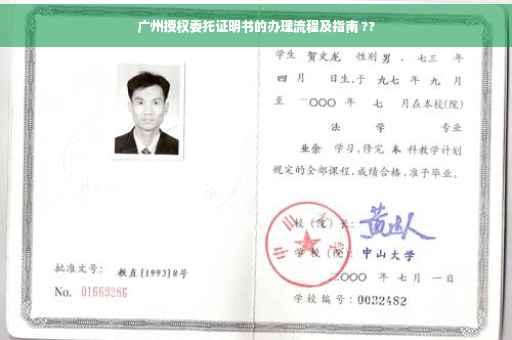 广州授权委托证明书的办理流程及指南 ??
学生 贺文龙 性别 男 、七三 年
四 月 日生,于 九七 年 九 月
至 二〇〇〇 年 七 月在本校(院)
法 学 专业
业余 学习,修完 本 科教学计划
规定的全部课程,成绩合格,准予毕业。
校(院)长:
学校(院): 中山大学
二〇〇〇 年 七 月 一 日
批准文号: 教直[1993]8号
No. 01669286
学校编号: 0032482